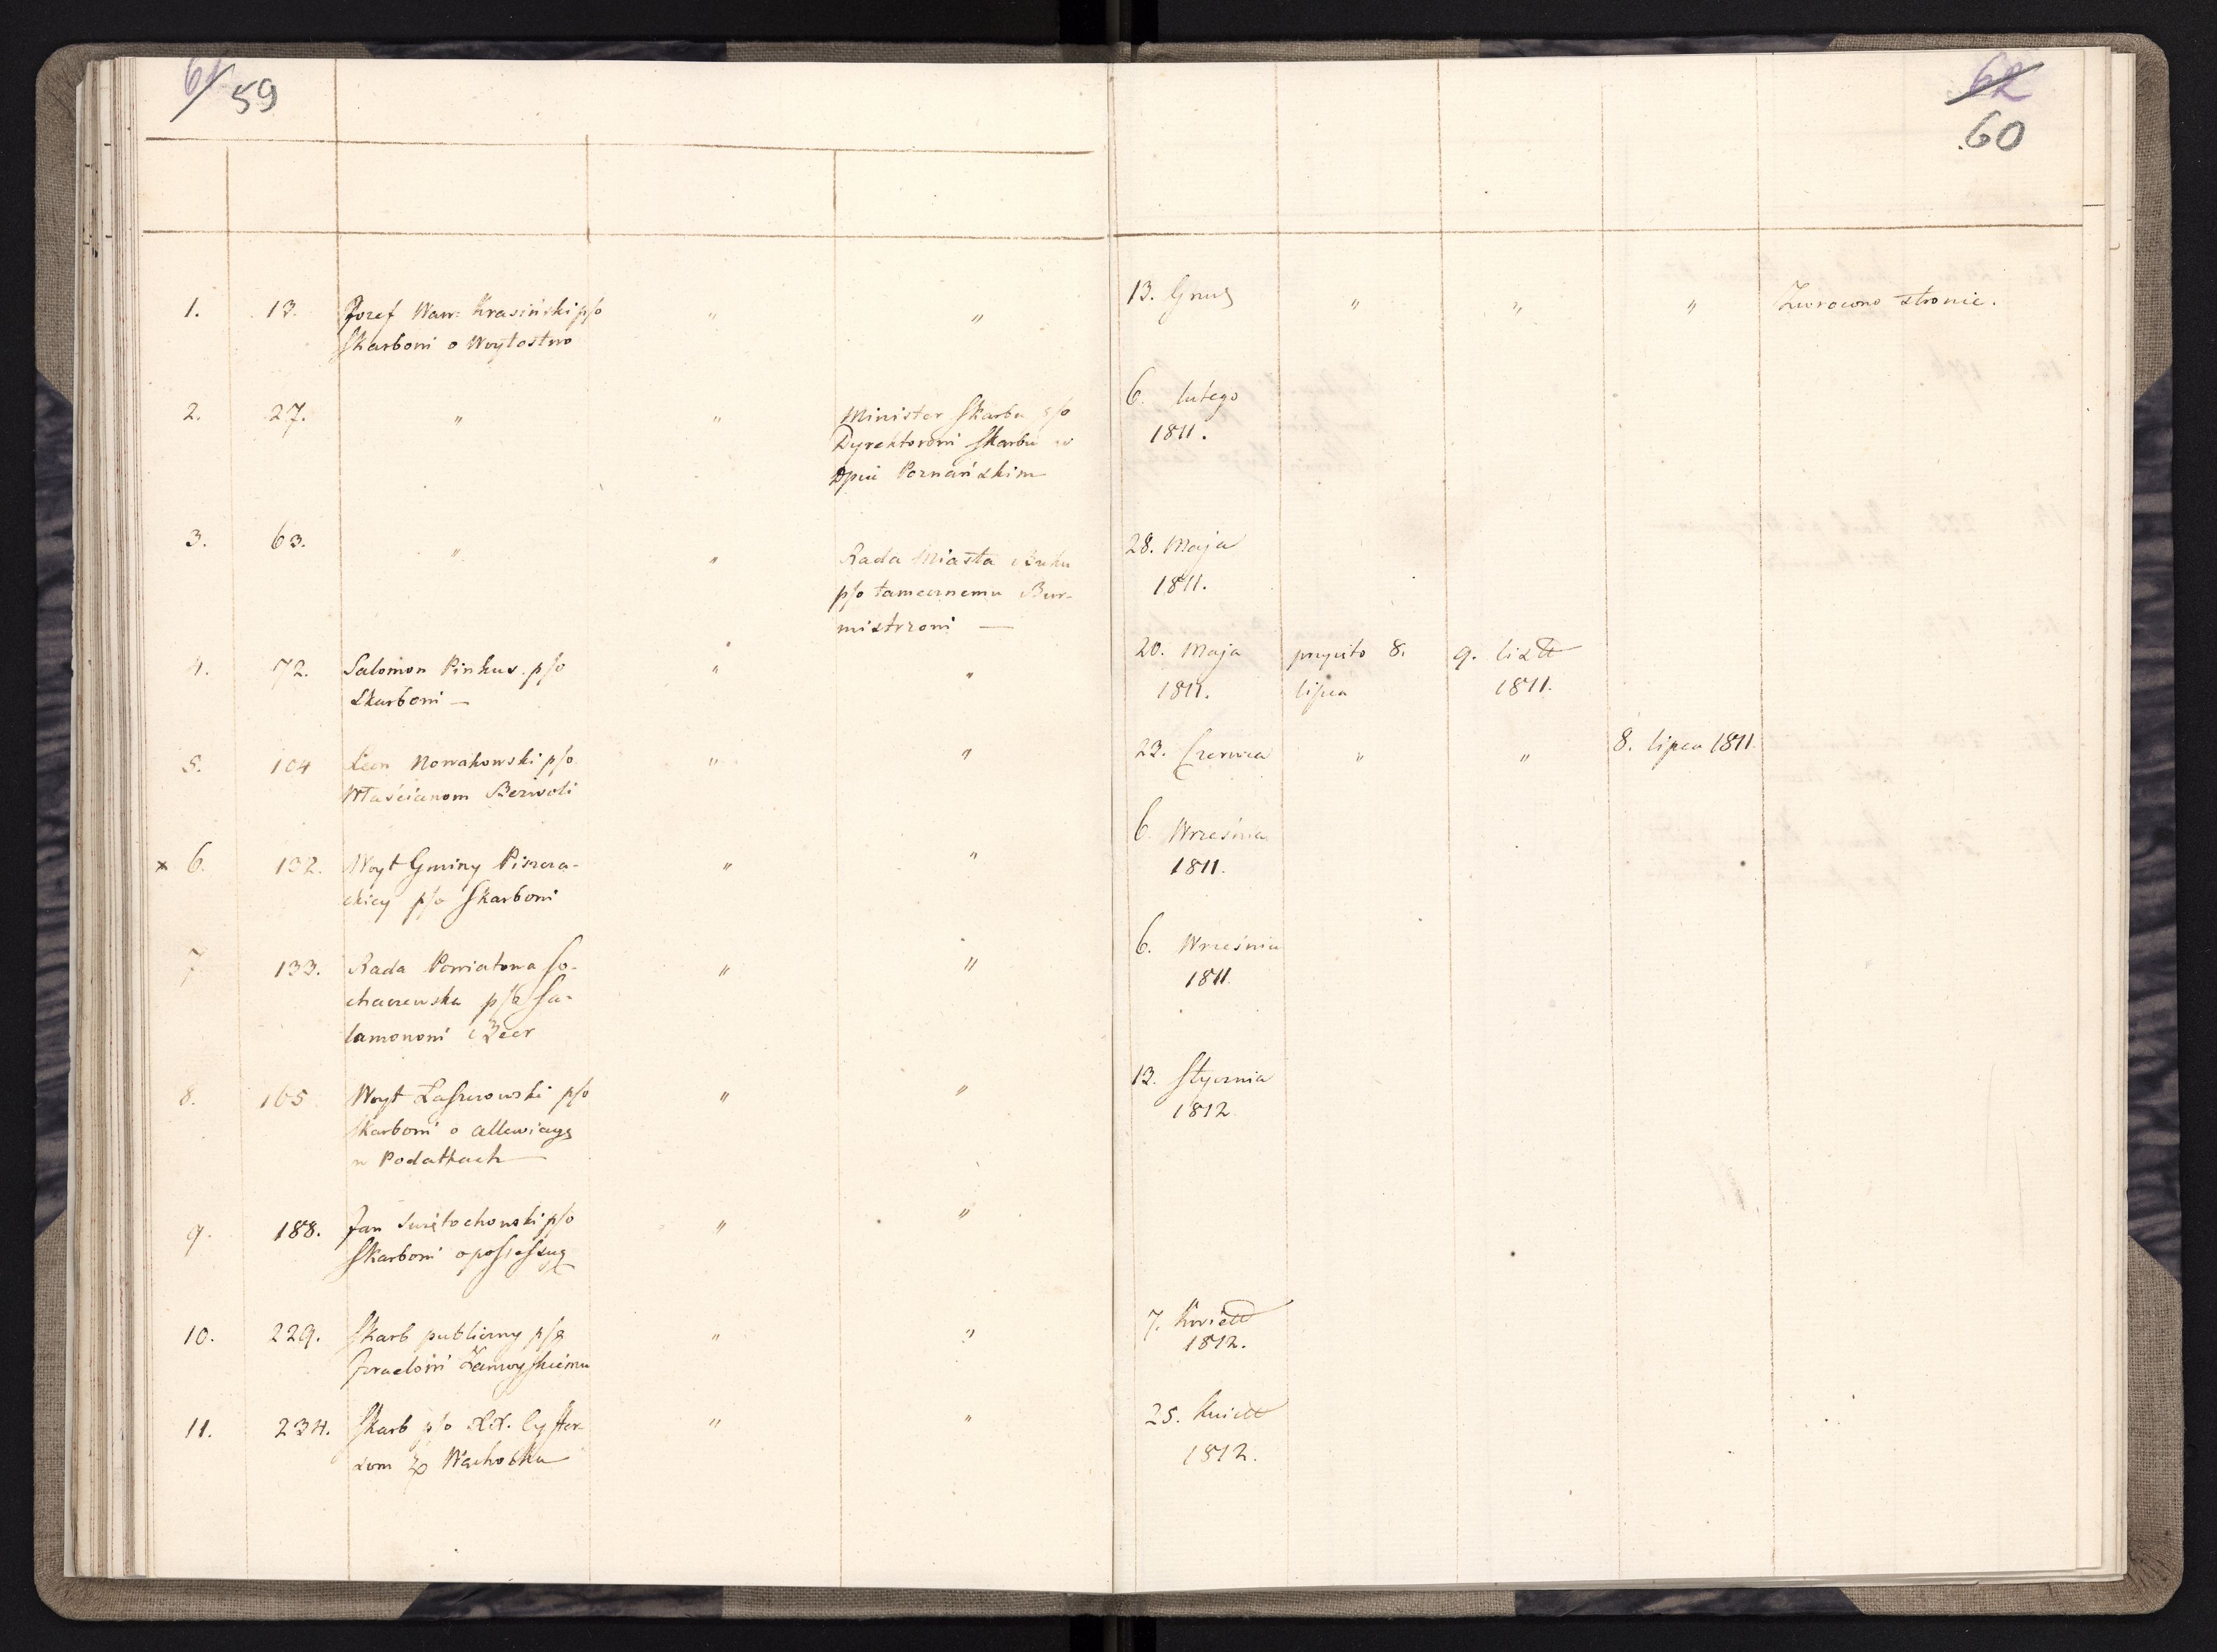 61 59
62
60
1. 13. Jozef Waw: Krasiński p/o " " 13. Grud " " " Zwrocono stronie.
Skarbowi o Woytostwo
2. 27. " " Minister Skarbu p/o 6. lutego
Dyrektorowi Skarbu w 1811.
Dpcie Poznańskim
3. 63. " " Rada Miasta Buku 28. Maja
p/o tamecznemu Bur- 1811.
mistrzowi —
4. 72. Salomon Pinkus p/o " " 20. Maja przyięto 8. 9. listt
Skarbowi — 1811. lipca 1811.
5. 104 Leon Nowakowski p/o " " 23. Czerwca " " 8. lipca 1811.
Włościanom Bezwoli
x 6. 132. Woyt Gminy Piszcza- " " 6. Września
ckiey p/o Skarbowi 1811.
7 133. Rada Powiatowa So- " " 6. Września
chaczewska p/o Sa- 1811.
lamonowi Beer
8. 165 Woyt Laszczowski p/o " " 13. Stycznia
Skarbowi o allewiacyą 1812.
w Podatkach
9. 188. Jan Świętochowski p/o " "
Skarbowi o possessyą
10. 229. Skarb publiczny p/o " " 7. Kwiett
Zamoyskiemu 1812.
11. 234. Skarb p/o XX. Cyster- " " 25. Kwiett
som z Wąchocka 1812.